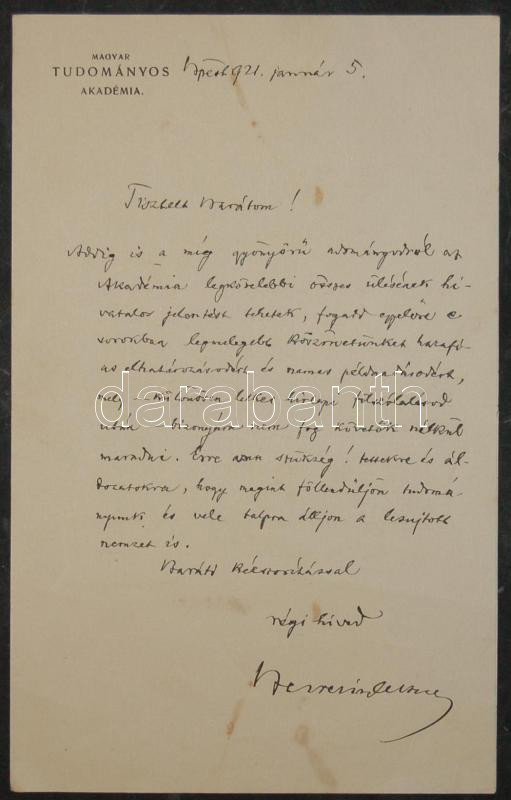 MAGYAR
TUDOMÁNYOS
AKADÉMIA.
Bpest 921. január 5.
Tisztelt Barátom!
Addig is a míg gyönyörű adományodról az
Akadémia legközelebbi összes ülésének hi-
vatalos jelentést tehetek, fogadd egyelőre e
sorokban legmelegebb köszönetünket hazafi-
as elhatározásodért és nemes példaadásodért,
mely – különösen lelkes hírlapi fölszólalásod
után – bizonyára nem fog követők nélkül
maradni. Erre van szükség! tettekre és ál-
dozatokra, hogy megint föllendüljön tudomá-
nyunk és vele talpra álljon a lesujtott
nemzet is.
Baráti kézszorítással
régi híved
darabanth